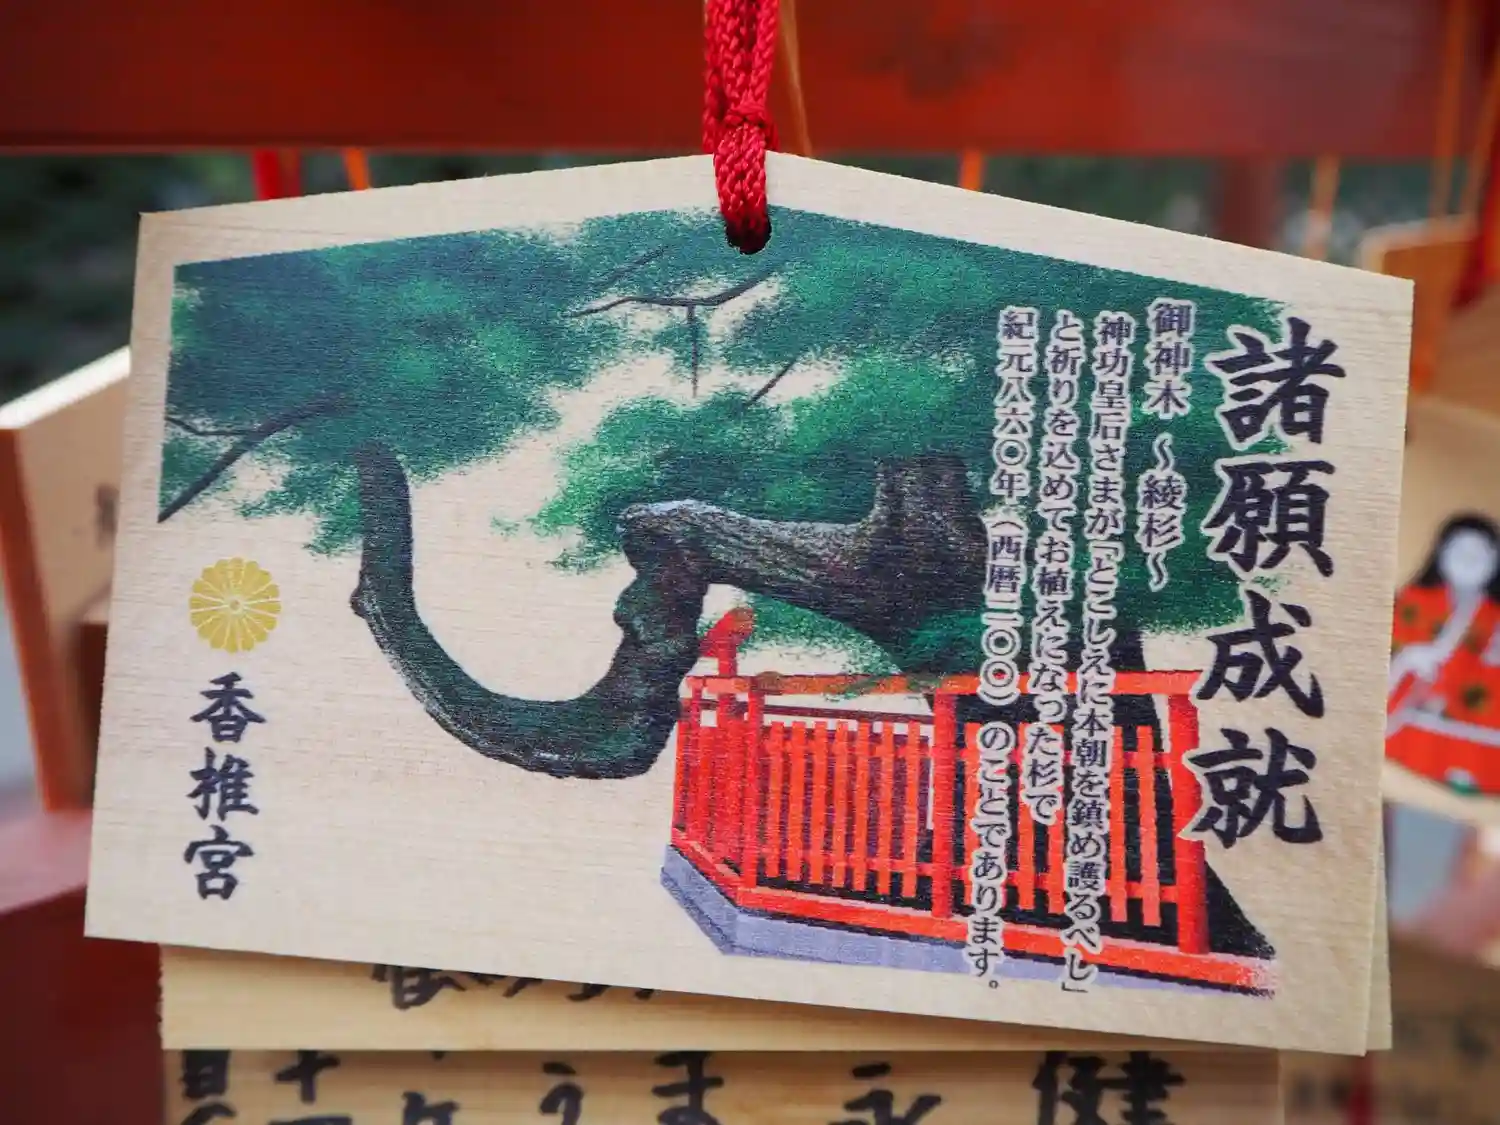 諸願成就
御神木 ～綾杉～
神功皇后さまが「とこしえに本朝を鎮め護るべし」
と祈りを込めてお植えになった杉で
紀元八六〇年（西暦二〇〇）のことであります。
香椎宮
健
永
うま